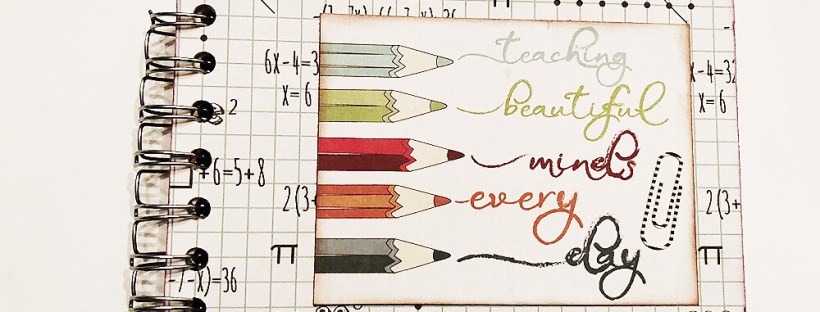 6x-4=3
x=6
2
+6=5+8
2(3+
π
-x)=36
teaching
beautiful
minds
every
day
x-4=32
x=6
2(3+
π